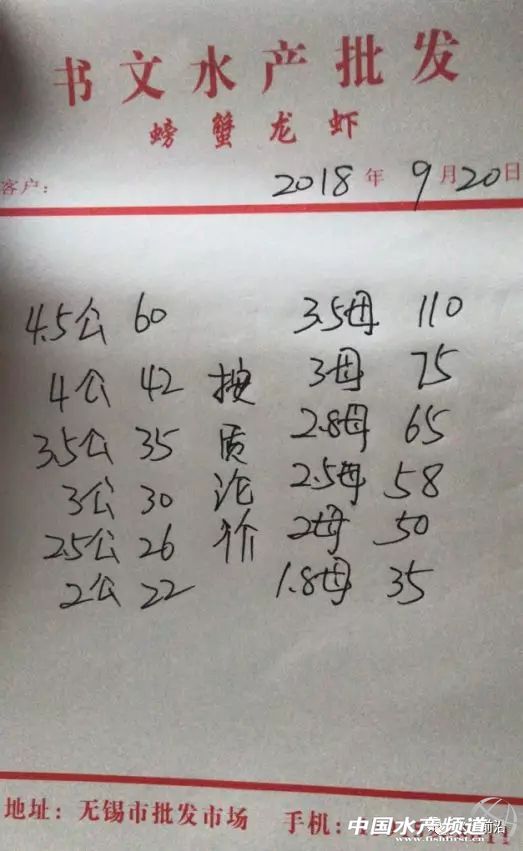 书文水产批发
螃蟹龙虾
客户： 2018年9月20日
4.5公 60 3.5母 110
4公 42 按 3母 75
3.5公 35 质 2.8母 65
3公 30 论 2.5母 58
2.5公 26 价 2母 50
2公 22 1.8母 35
地址：无锡市批发市场 手机：
中国水产频道
www.fishfirst.cn